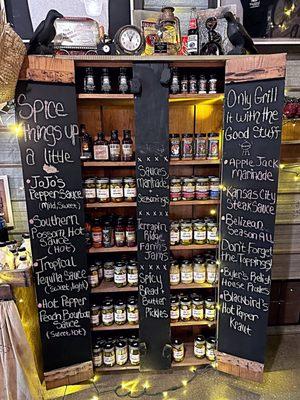 Spice
things up
a little
JoJo's
Pepper Sauce
(Mild, Sweet)
Southern
Possom Hot
Sauce (Hot)
Tropical
Tequila Sauce
(Sweet)
Hot Pepper
Peach Bourbon
Sauce
(Sweet, Hot)
Sauces
Marinade
Seasonings
Terrapin
Ridge
Farms
Jams
Spices
Bread &
Butter
Pickles
Only Grill
It with the
Good Stuff
Apple Jack
Marinade
Kansas City
Steak Sauce
Belizean
Season All
Don't Forget
the Toppings
Byler's Relish
House Pickles
Blenbird's
Hot Pepper
Kraut